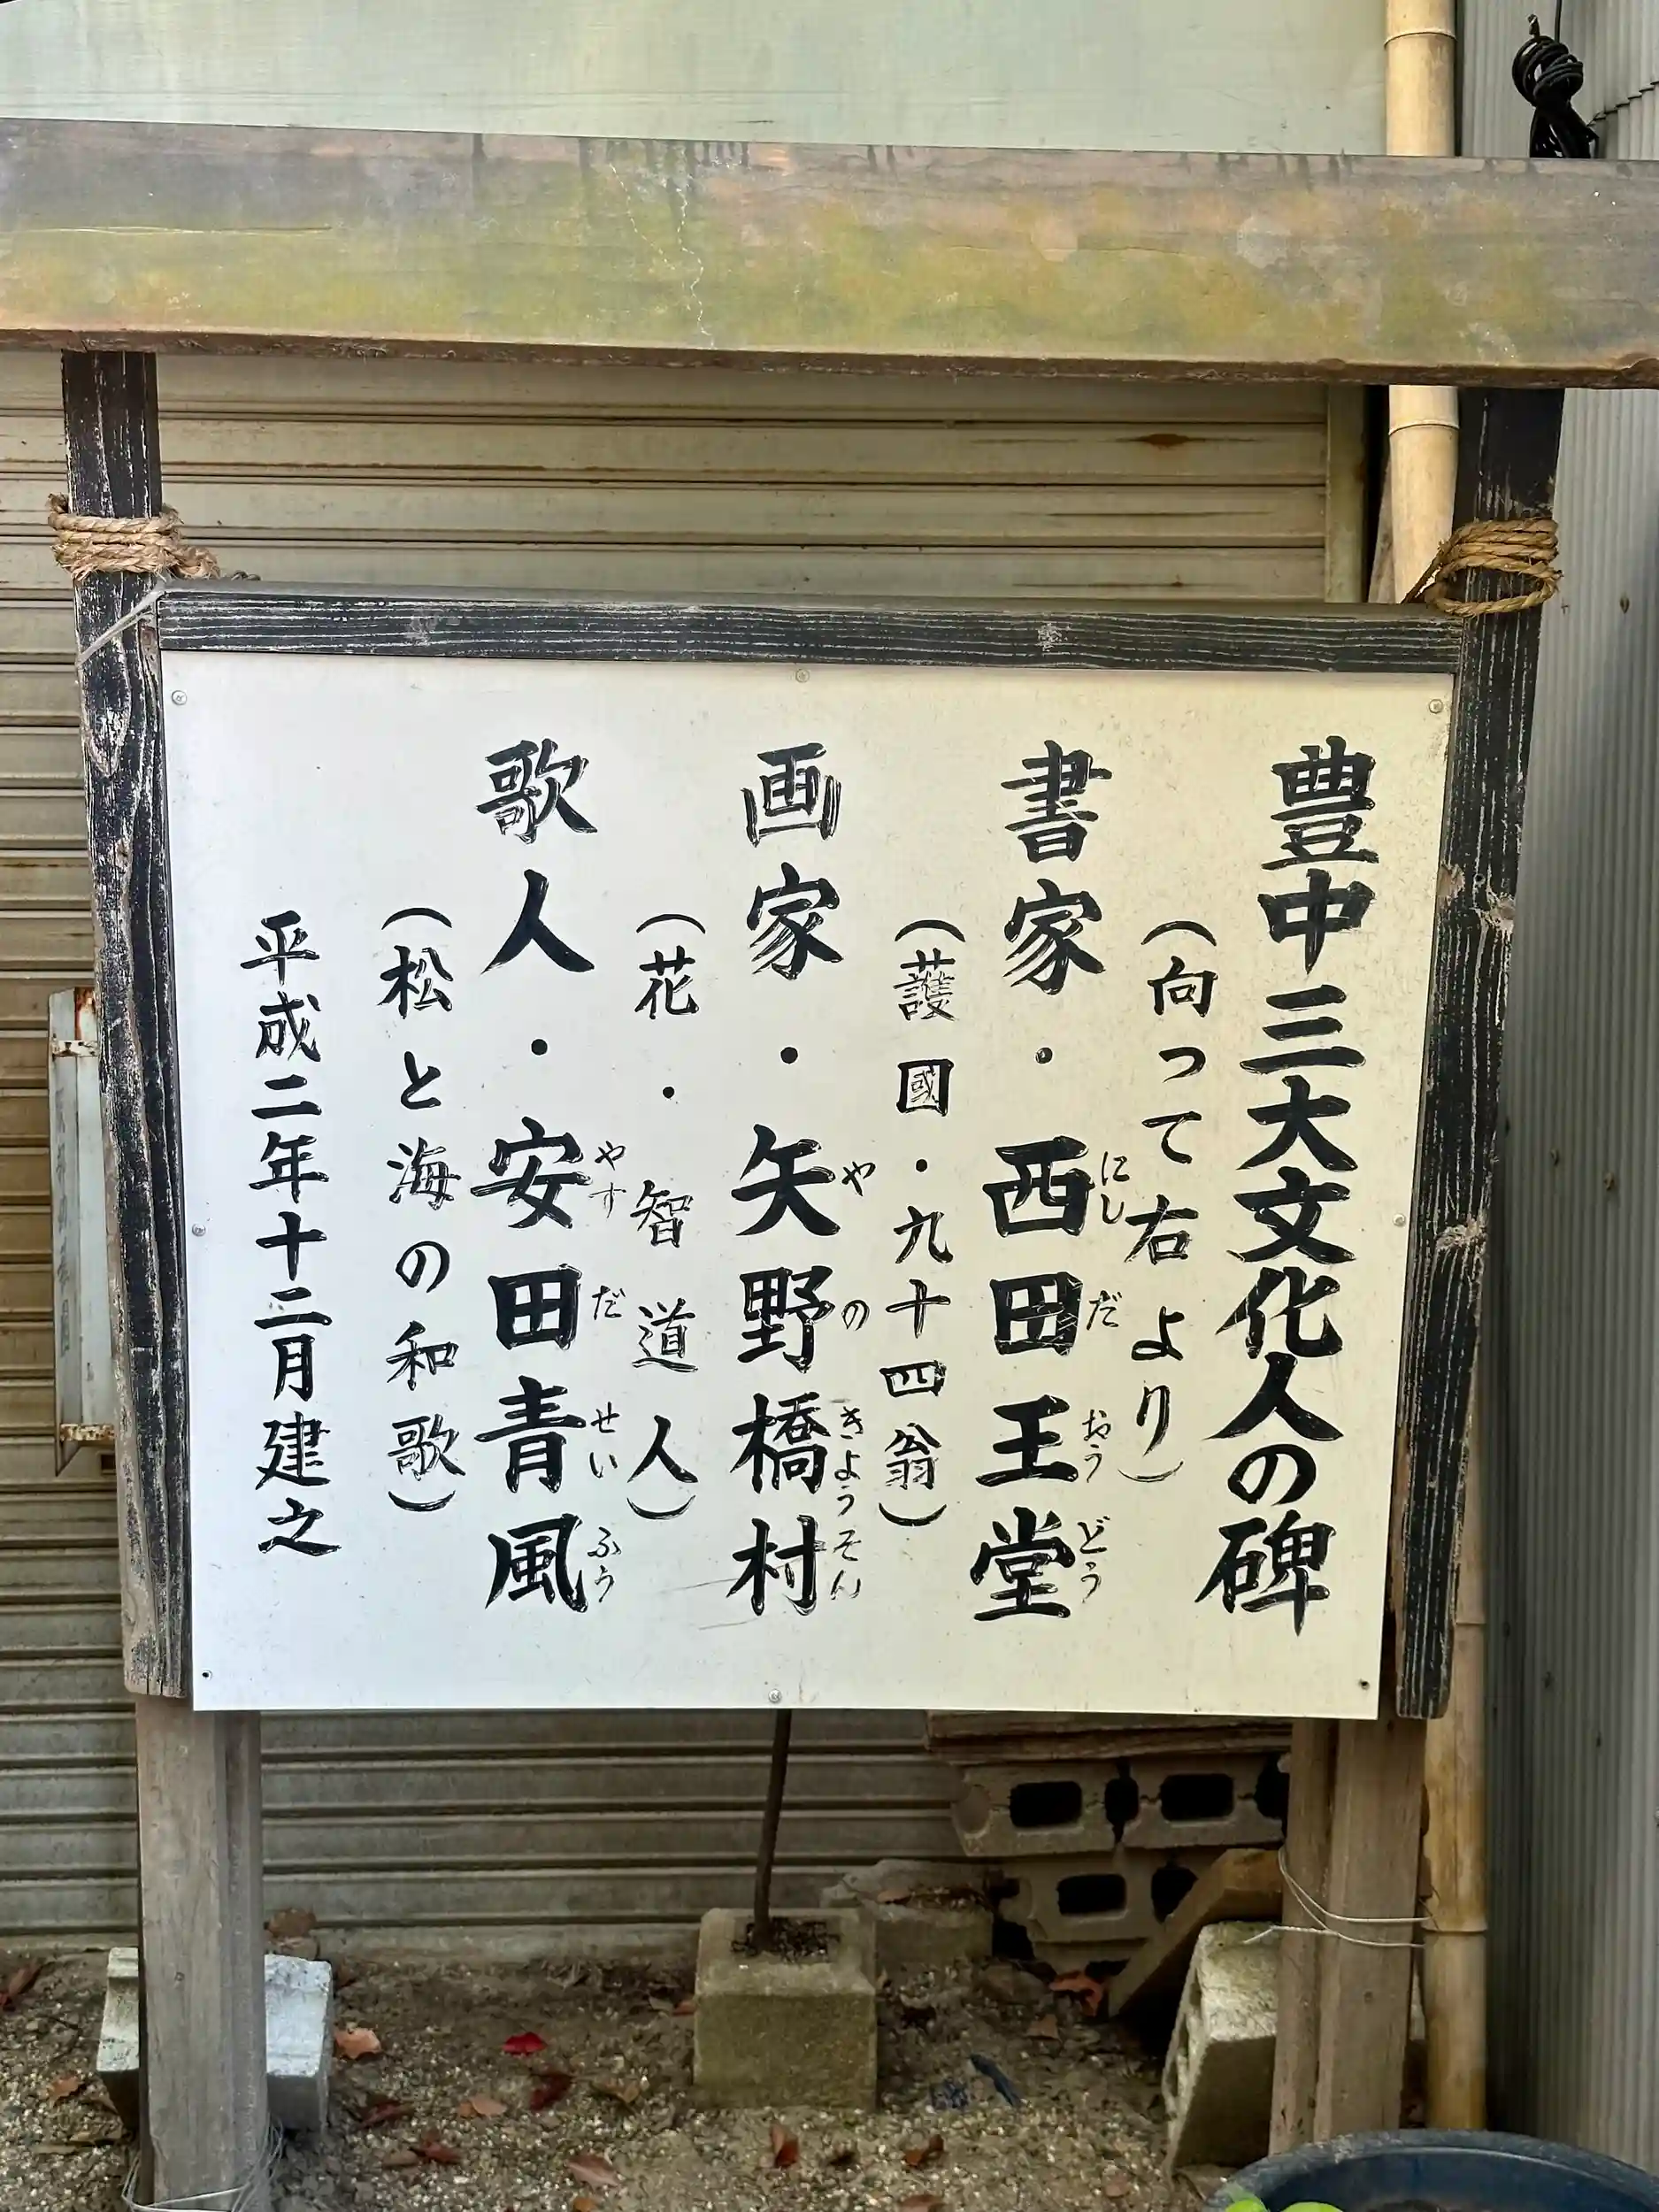 豊中三大文化人の碑
(向って右より)
書家・西田王堂
にし だ おう どう
(護國・九十四翁)
画家・矢野橋村
や の きょう そん
(花・智道人)
歌人・安田青風
やす だ せい ふう
(松と海の和歌)
平成二年十二月建之